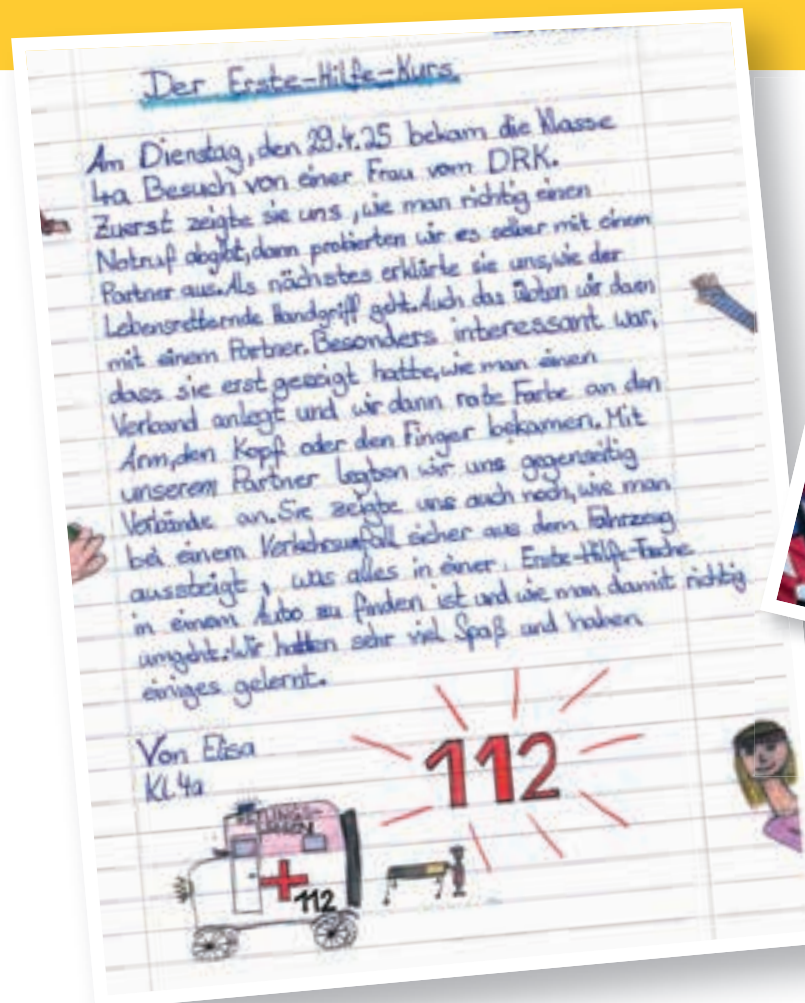 Der Erste-Hilfe-Kurs
Am Dienstag, den 29.4.25 bekam die Klasse
4a Besuch von einer Frau vom DRK.
Zuerst zeigte sie uns, wie man richtig einen
Notruf abgibt, dann probierten wir es selber mit einem
Partner aus. Als nächstes erklärte sie uns, wie der
Lebensretternde Handgriff geht. Auch das übten wir dann
mit einem Partner. Besonders interessant war,
dass sie erst gezeigt hatte, wie man einen
Verband anlegt und wir dann rote Farbe an den
Arm, den Kopf oder den Finger bekamen. Mit
unserem Partner legten wir uns gegenseitig
Verbände an. Sie zeigte uns auch noch, wie man
bei einem Verkehrsunfall sicher aus dem Fahrzeug
aussteigt, was alles in einer Erste-Hilfe-Tasche
in einem Auto zu finden ist und wie man damit richtig
umgeht. Wir hatten sehr viel Spaß und haben
einiges gelernt.
Von Elisa
Kl.4a
112
112